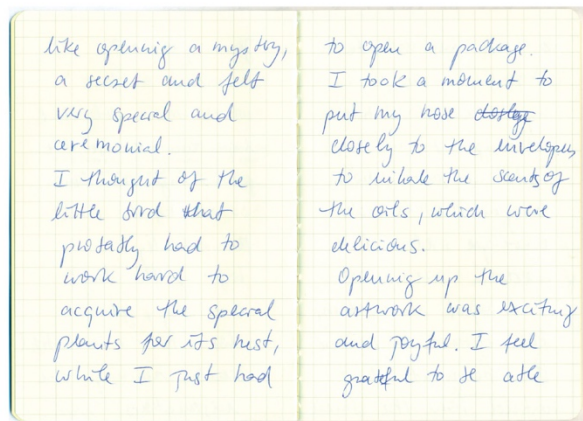 like opening a mystery,
a secret and felt
very special and
ceremonial.
I thought of the
little bird that
probably had to
work hard to
acquire the special
plants for its nest,
while I just had
to open a package.
I took a moment to
put my nose
closely to the envelopes
to inhale the scents of
the oils, which were
delicious.
Opening up the
artwork was exciting
and joyful. I feel
grateful to be able